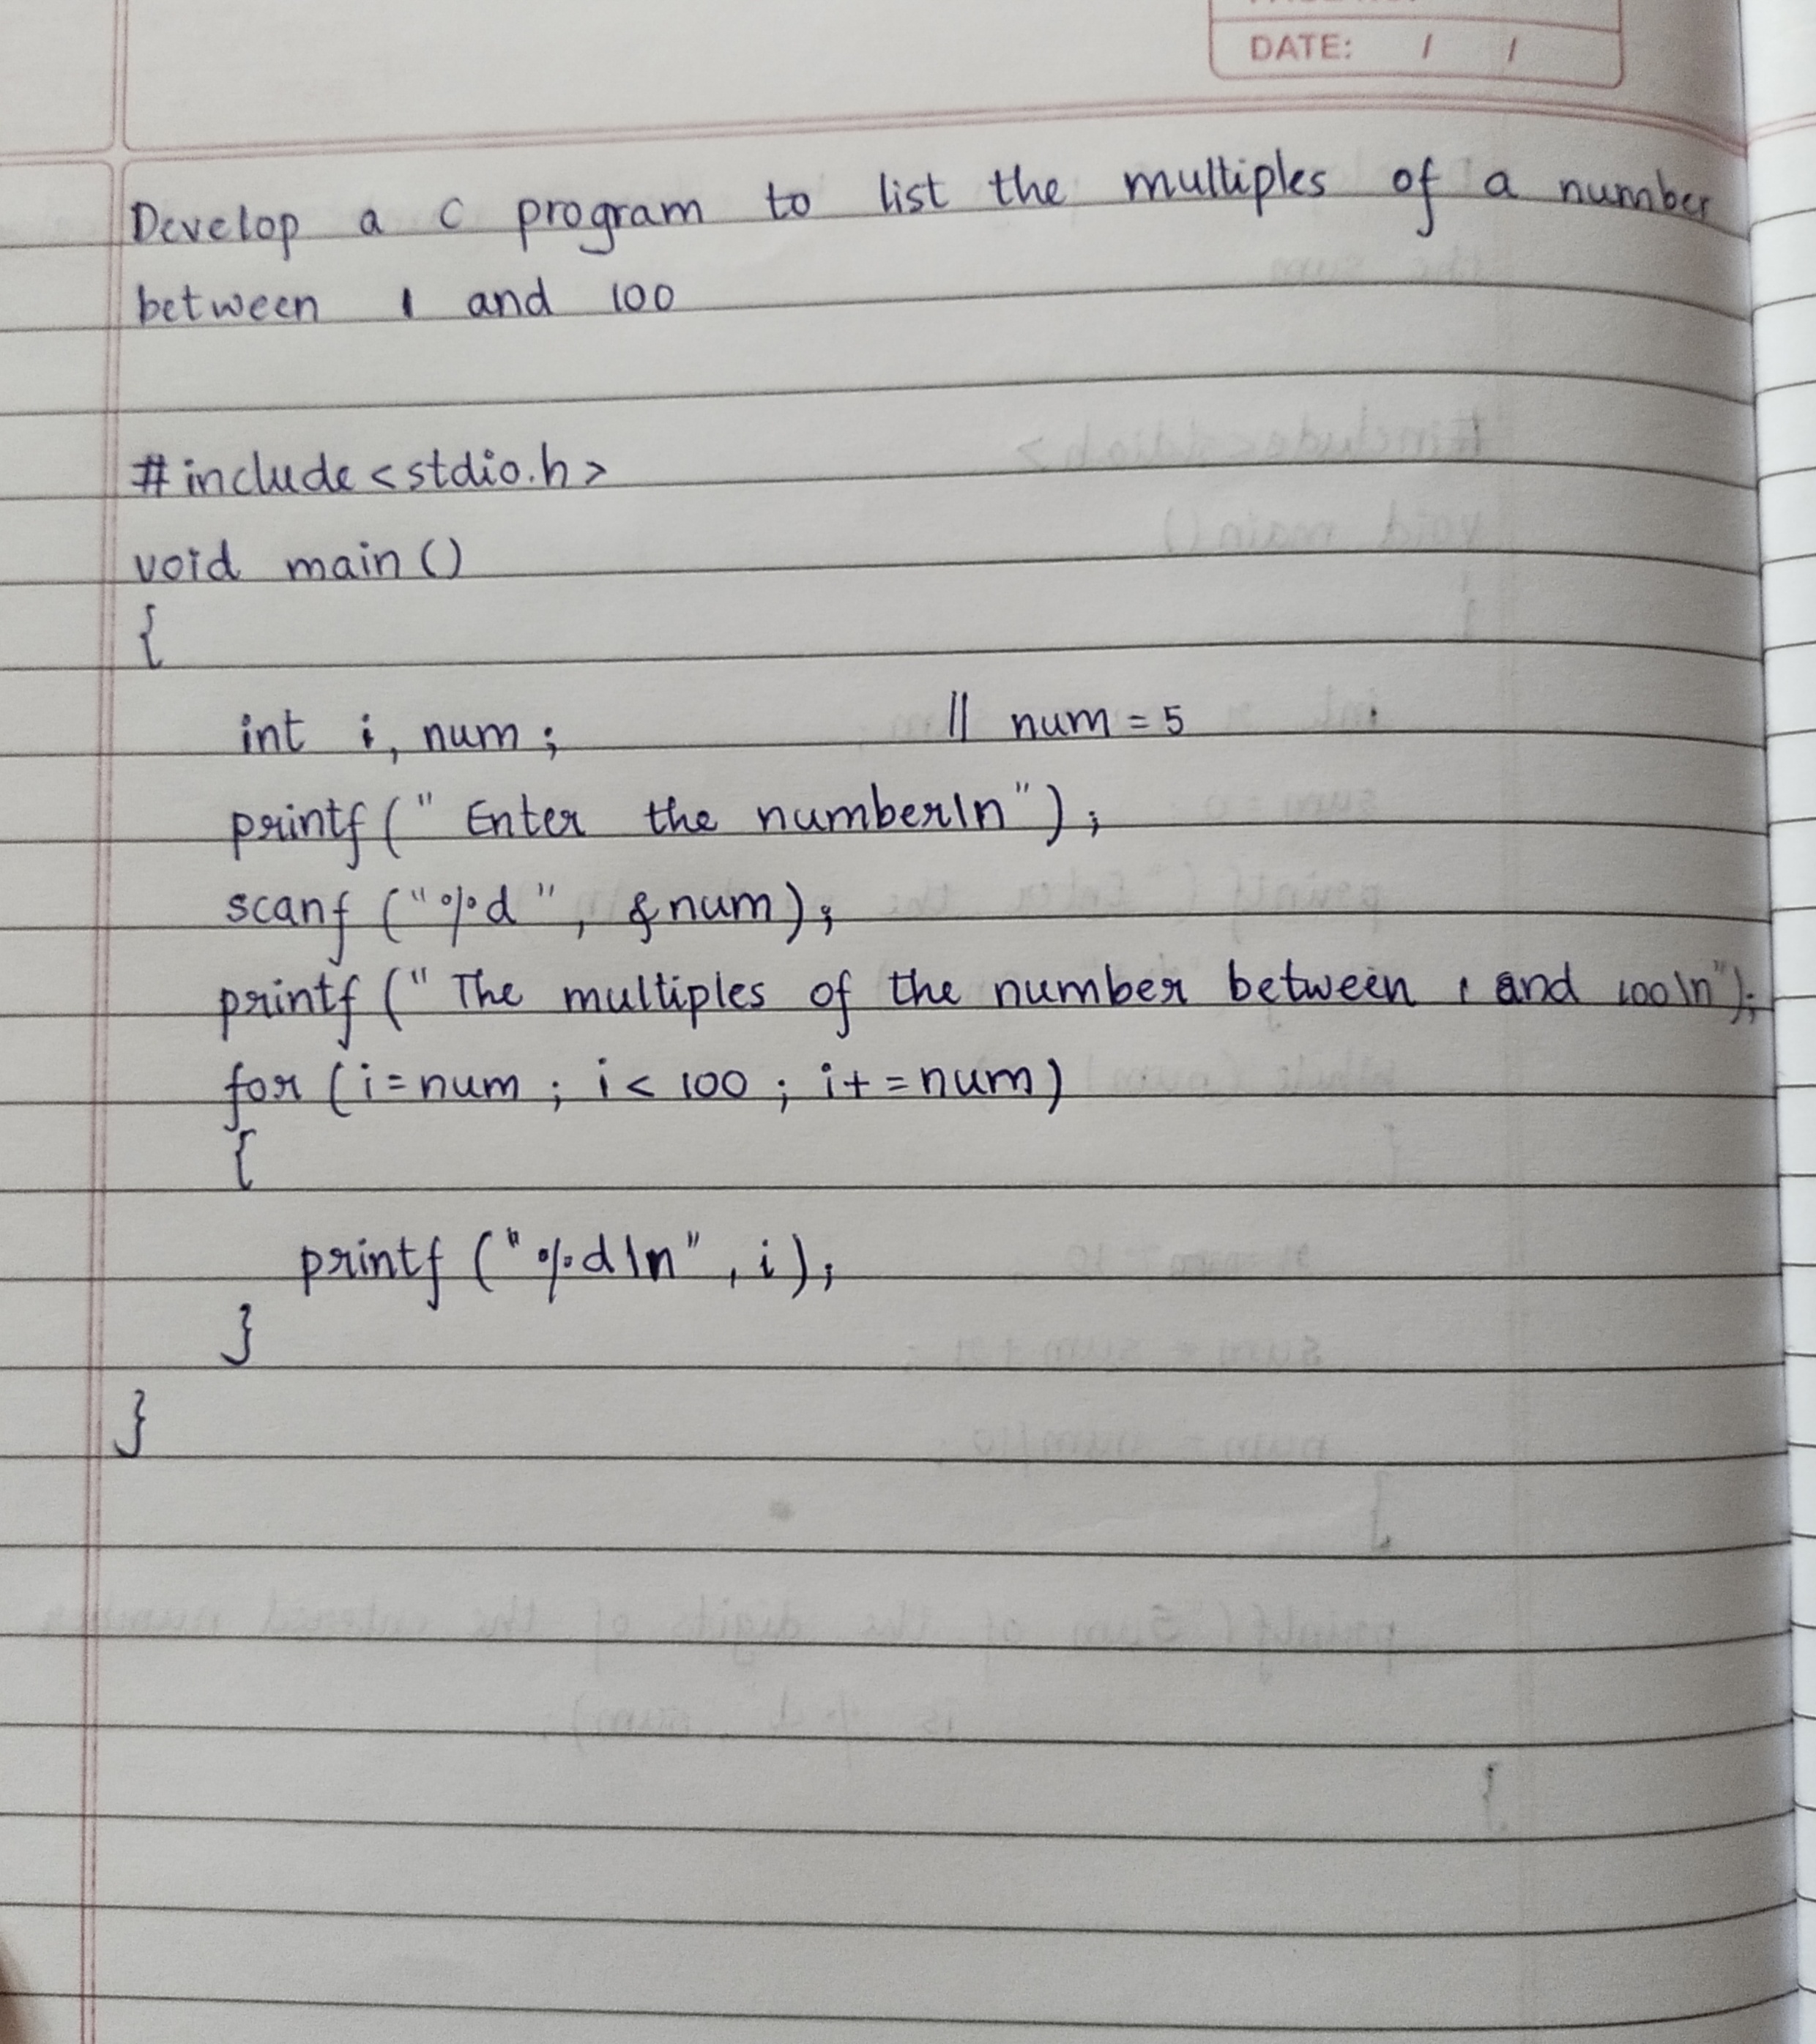 DATE: / /
Develop a C program to list the multiples of a number
between 1 and 100
#include<stdio.h>
void main()
{
int i, num; // num = 5
printf(" Enter the number\n");
scanf ("%d", &num);
printf(" The multiples of the number between 1 and 100\n");
for (i=num ; i< 100 ; i+=num)
{
printf ("%d\n", i);
}
}